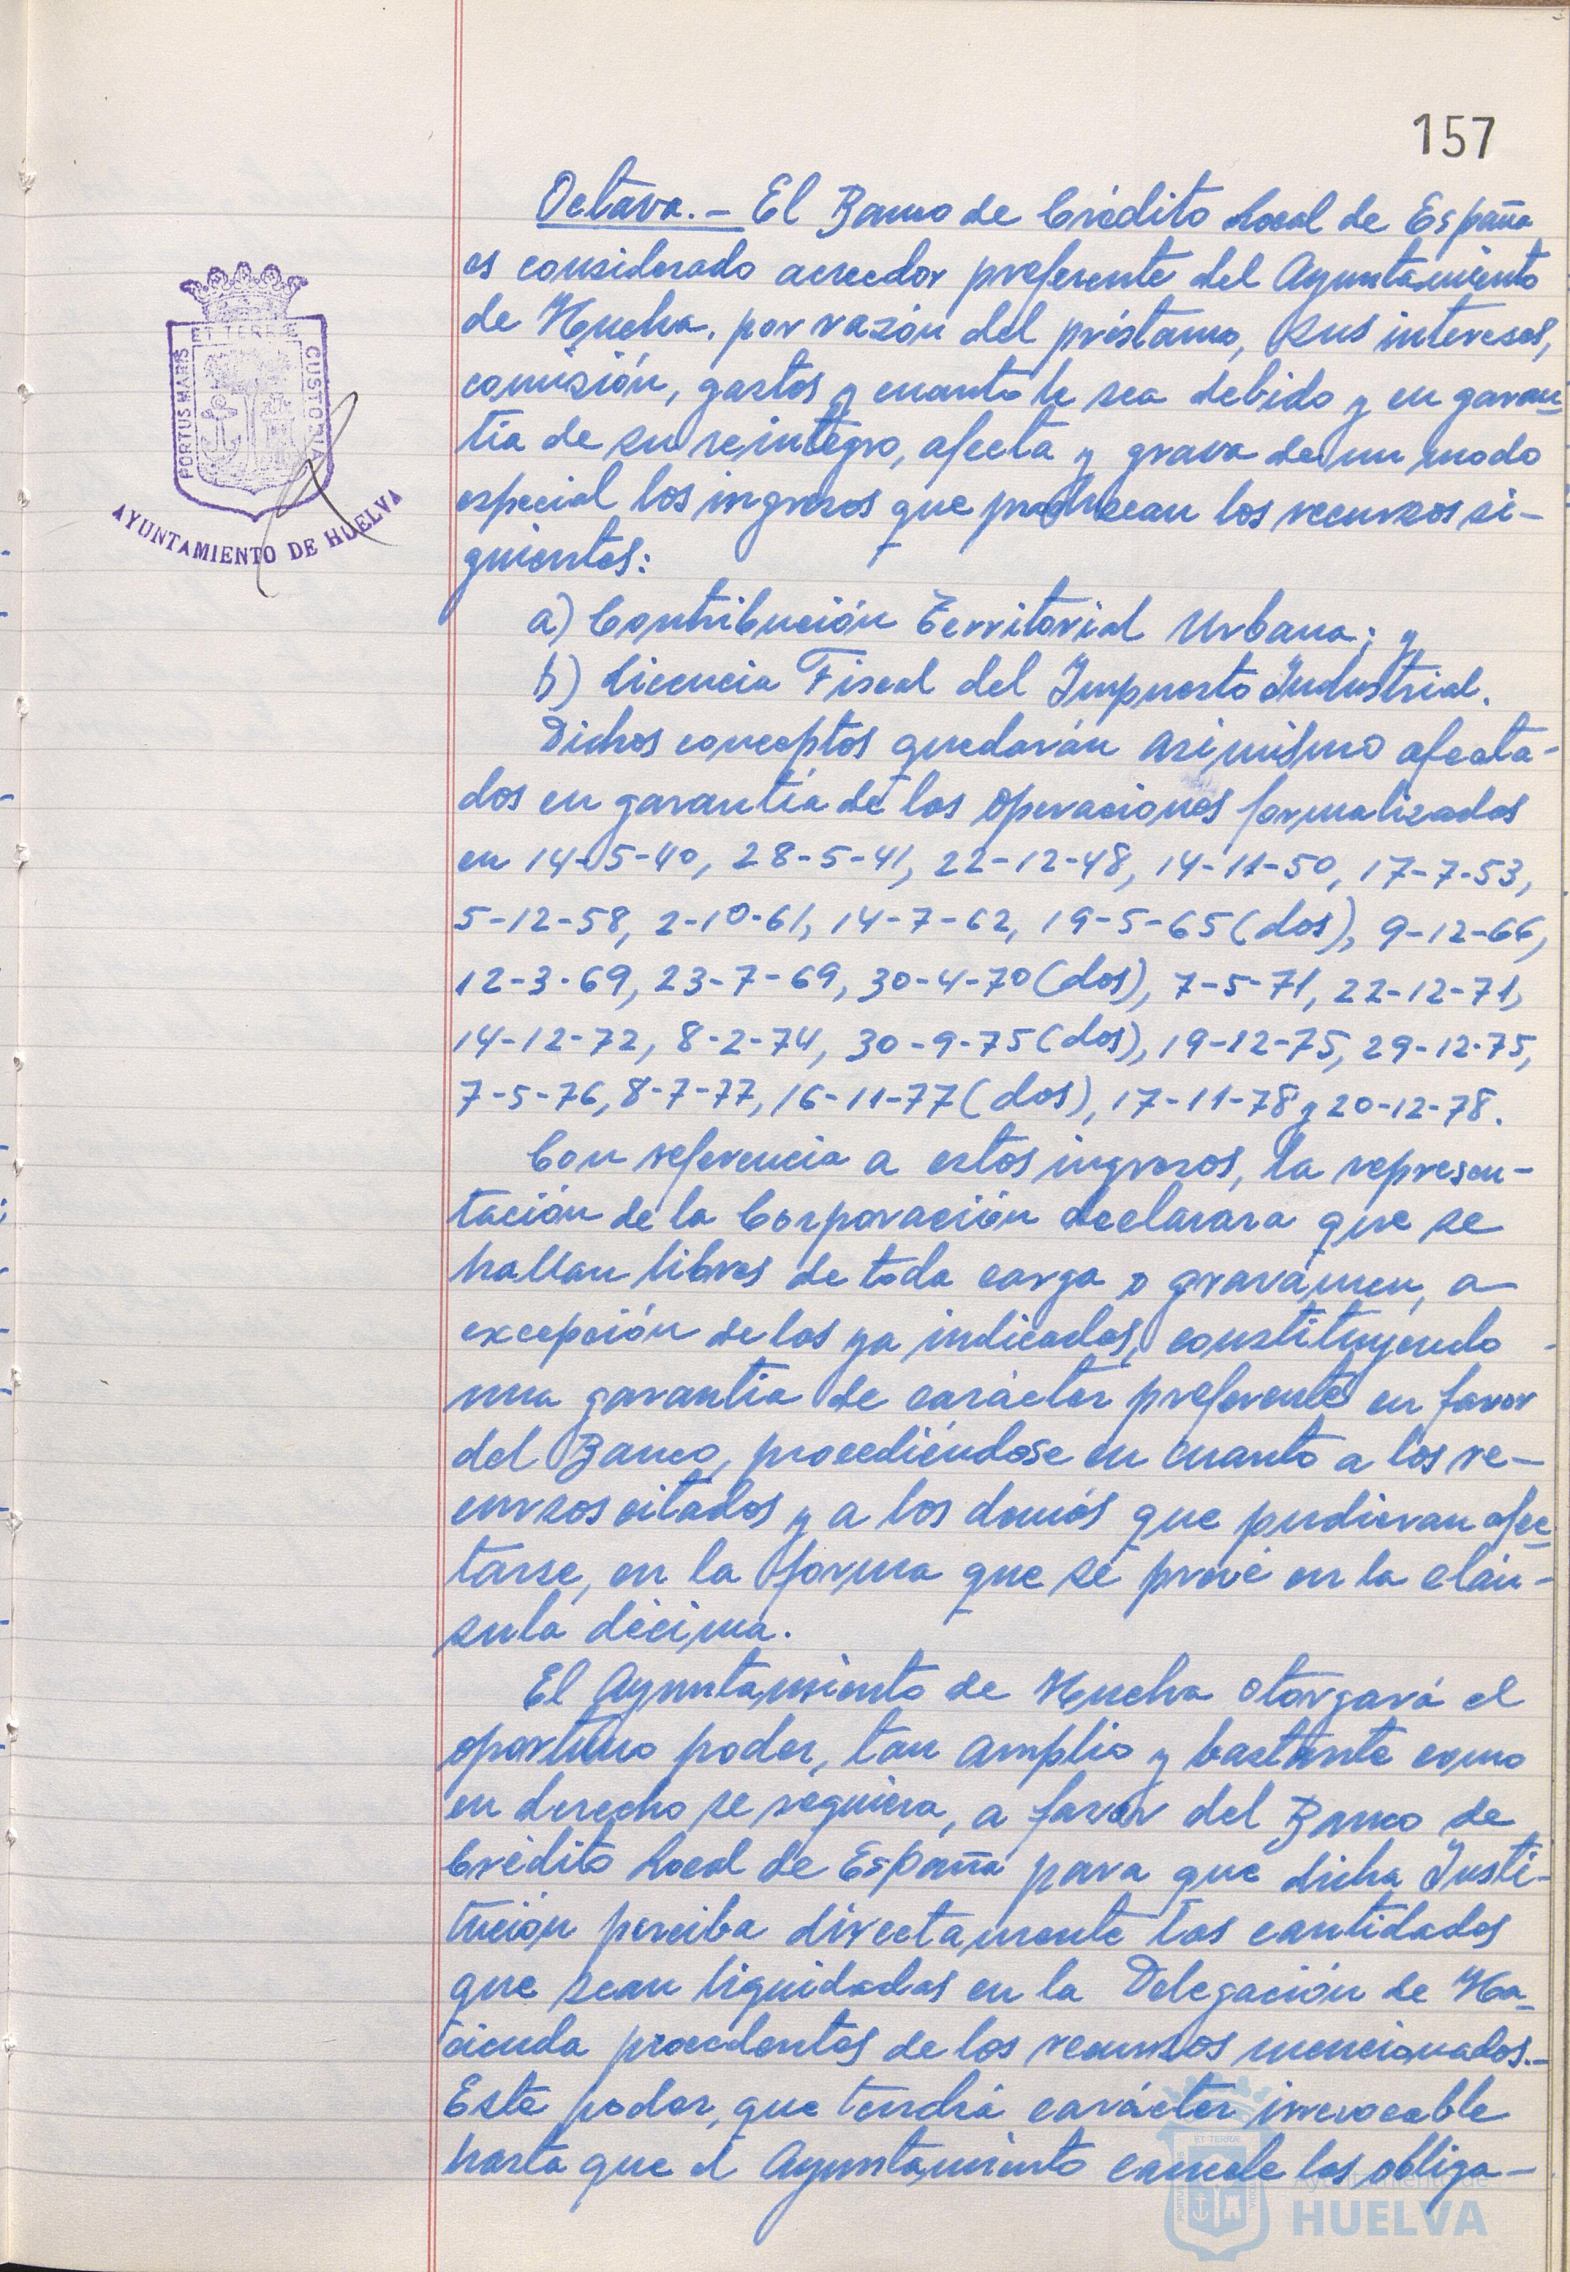 157
Octava.- El Banco de Crédito Local de España
es considerado acreedor preferente del Ayuntamiento
de Huelva, por razón del préstamo, sus intereses,
comisión, gastos y cuanto le sea debido y en garan-
tía de su reintegro, afecta y grava de un modo
especial los ingresos que produzcan los recursos si-
guientes:
a) Contribución Territorial Urbana; y
b) Licencia Fiscal del Impuesto Industrial.
Dichos conceptos quedarán asimismo afecta-
dos en garantía de las operaciones formalizadas
en 14-5-40, 28-5-41, 22-12-48, 14-11-50, 17-7-53,
5-12-58, 2-10-61, 14-7-62, 19-5-65 (dos), 9-12-66,
12-3-69, 23-7-69, 30-4-70 (dos), 7-5-71, 22-12-71,
14-12-72, 8-2-74, 30-9-75 (dos), 19-12-75, 29-12-75,
7-5-76, 8-7-77, 16-11-77 (dos), 17-11-78 y 20-12-78.
Con referencia a estos ingresos, la represen-
tación de la Corporación declarara que se
hallan libres de toda carga o gravámen, a
excepción de las ya indicadas, constituyendo
una garantía de carácter preferente en favor
del Banco, procediéndose en cuanto a los re-
cursos citados y a los demás que pudieran afec-
tarse, en la forma que se prevé en la cláu-
sula décima.
El Ayuntamiento de Huelva otorgará el
oportuno poder, tan amplio y bastante como
en derecho se requiera, a favor del Banco de
Crédito Local de España para que dicha Insti-
tución perciba directamente las cantidades
que sean liquidadas en la Delegación de Ha-
cienda procedentes de los recursos mencionados.-
Este poder, que tendrá carácter irrevocable
hasta que el Ayuntamiento cancele las obliga-
PORTUS MARIS ET TERRAE CUSTODIA
AYUNTAMIENTO DE HUELVA
Ayuntamiento de
HUELVA